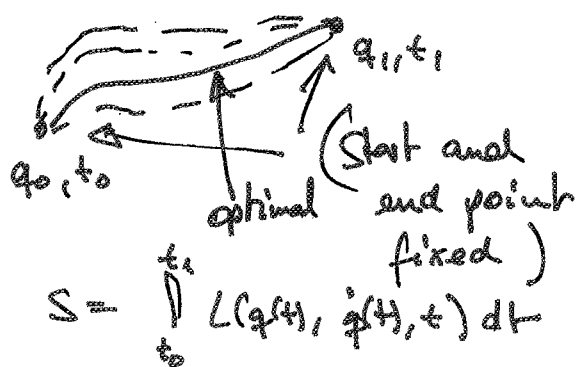 q₁, t₁
q₀, t₀
optimal
(Start and
end point
fixed)
S = ∫_{t₀}^{t₁} L(q(t), q̇(t), t) dt